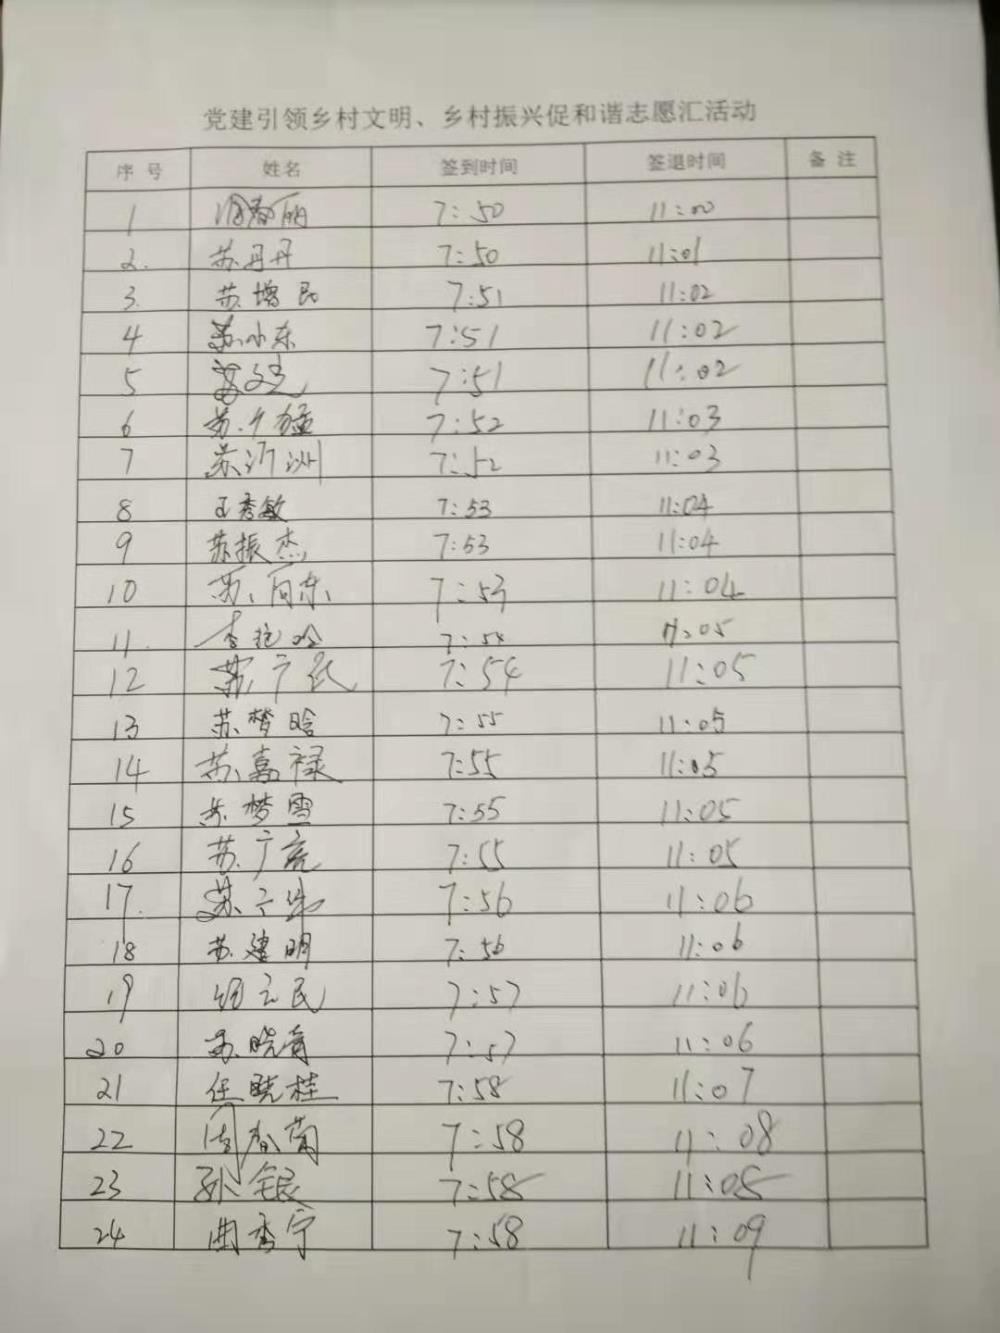 党建引领乡村文明、乡村振兴促和谐志愿汇活动
序号 姓名 签到时间 签退时间 备注
1 周春丽 7:50 11:00
2. 苏丹丹 7:50 11:01
3. 苏增民 7:51 11:02
4 苏小东 7:51 11:02
5 7:51 11:02
6 苏 猛 7:52 11:03
7 苏沂洲 7:52 11:03
8 王秀敏 7:53 11:04
9 苏振杰 7:53 11:04
10 苏向东 7:53 11:04
11. 李 7:54 11:05
12 苏广民 7:54 11:05
13 苏梦晗 7:55 11:05
14 苏嘉禄 7:55 11:05
15 苏梦雪 7:55 11:05
16 苏广亮 7:55 11:05
17. 苏 7:56 11:06
18 苏建明 7:56 11:06
19 民 7:57 11:06
20 苏晓育 7:57 11:06
21 任晓桂 7:58 11:07
22 周春菊 7:58 11:08
23 孙银 7:58 11:08
24 曲秀宁 7:58 11:09